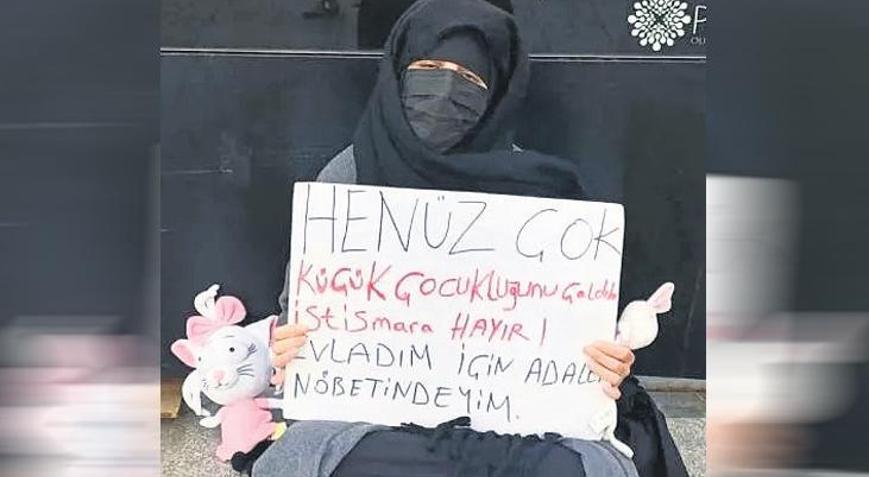 HENÜZ ÇOK
KÜÇÜK ÇOCUKLUğunu
İSTİSmara HAYIR !
EVLADIM İÇİN ADALET
NÖBETİNDEYİM.